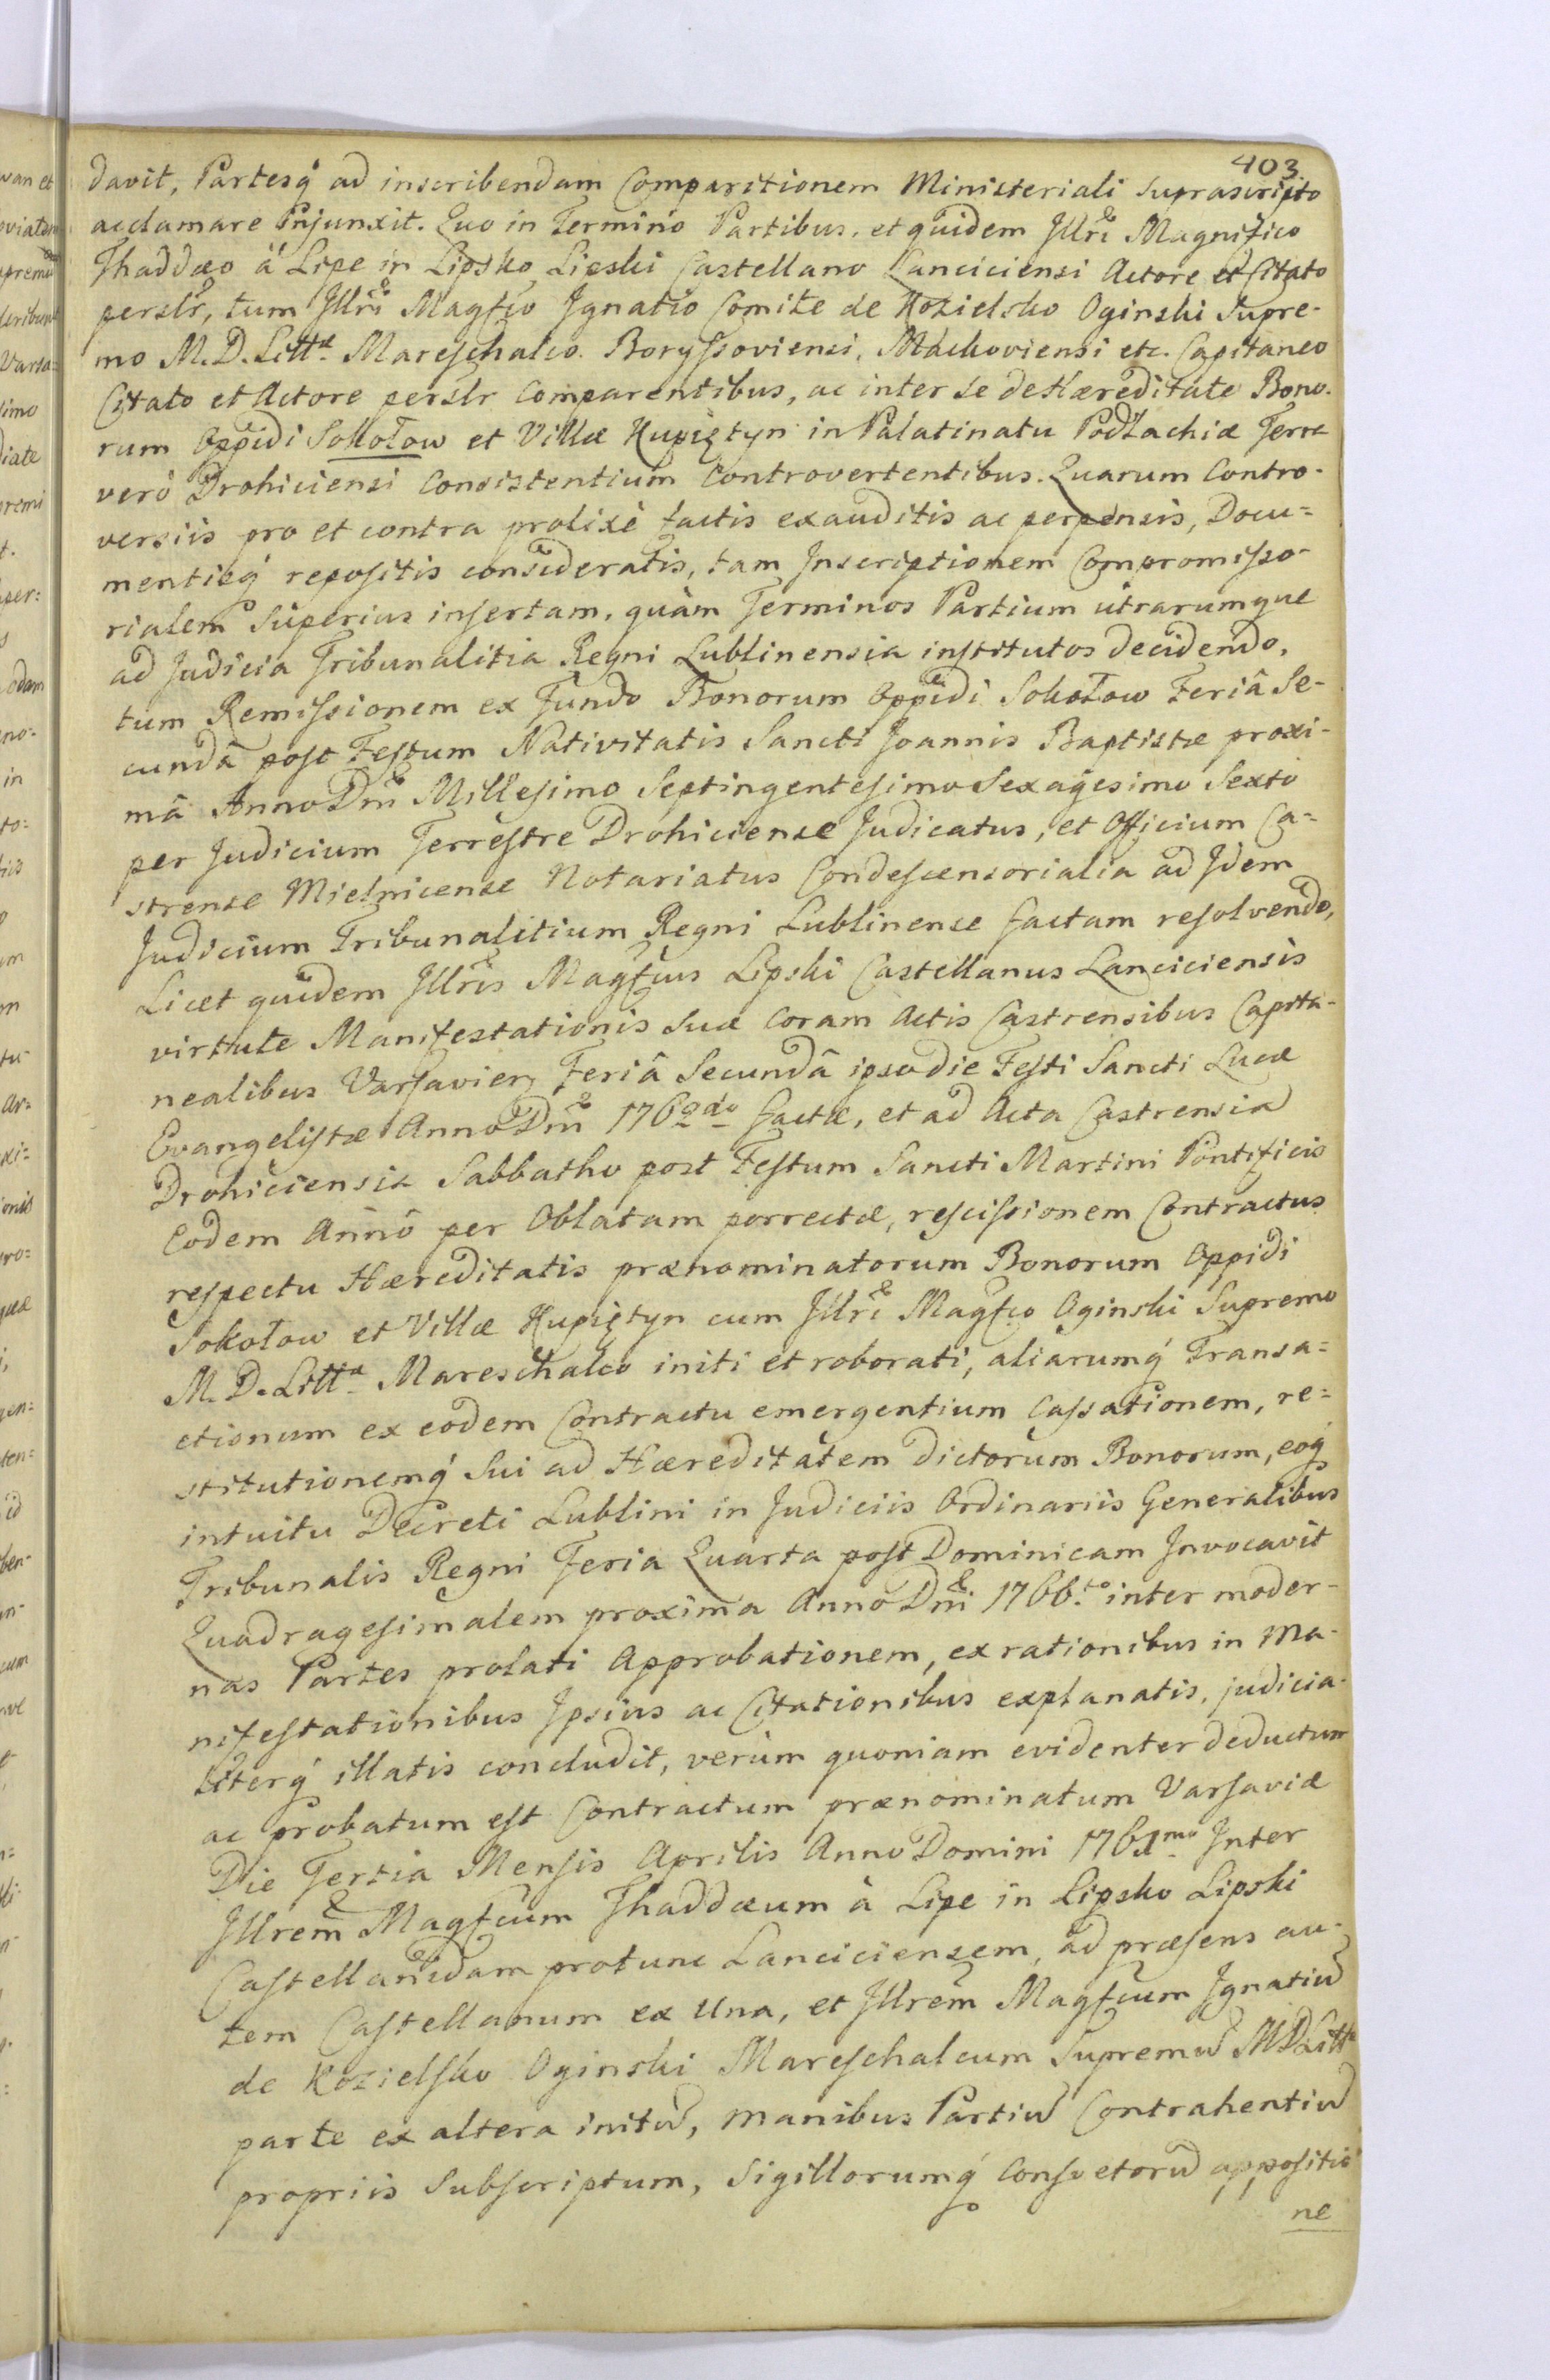 403
davit, Partesq́ ad inscribendam Comparitionem Ministeriali suprascripto
acclamare Injunxit. Quo in Termino Partibus, et quidem Jllri Magnifico
Thaddæo à Lipe in Lipsko Lipski Castellano Lanciciensi Actore et Citato
perslr, tum Jllri Magfco Jgnatio Comite de Kozielsko Oginski Supre-
mo M. D. Littæ Mareschalco. Boryssoviensi, Máckoviensi etc. Capitaneo
Citato et Actore perslr Comparentibus, ac inter se de Hæreditate Bono-
rum Oppidi Sokołow et Villæ Kupiętyn in Palatinatu Podlachiæ Terrâ
verò Drohiciensi Consistentium Controvertentibus. Quarum Contro-
versiis pro et contra prolixè factis exauditis ac perpensis, Docu=
mentisq́ repositis consideratis, tam Jnscriptionem Compromisso-
rialem Superius insertam, quàm Terminos Partium utrarumque
ad Judicia Tribunalitia Regni Lublinensia institutos decidendo,
tum Remissionem ex Fundo Bonorum Oppidi Sokołow Feriâ Se-
cundâ post Festum Nativitatis Sancti Joannis Baptistæ proxi-
mâ Anno Dni Millesimo Septingentesimo Sexagesimo Sexto
per Judicium Terrestre Drohiciense Judicatus, et Officium Ca=
strense Mielnicense Notariatus Condescensorialia ad Jdem
Judicium Tribunalitium Regni Lublinense factam resolvendo,
Licet quidem Jllris Magfcus Lipski Castellanus Lanciciensis
virtute Manifestationis Suæ coram Actis Castrensibus Capita-
nealibus Varsavien Feriâ Secundâ ipso die Festi Sancti Lucæ
Evangelistæ Anno Dni 1762do factæ, et ad Acta Castrensia
Drohiciensia Sabbatho post Festum Sancti Martini Pontificis
Eodem Anno per Oblatam porrectæ, rescissionem Contractus
respectu Hæreditatis prænominatorum Bonorum Oppidi
Sokołow et Villæ Kupiętyn cum Jllri Magfco Oginski Supremo
M. D. Littæ Mareschalco initi et roborati, aliarumq́ Transa=
ctionum ex eodem Contractu emergentium Cassationem, re=
stitutionemq́ Sui ad Hæreditatem dictorum Bonorum, eoq́
intuitu Decreti Lublini in Judiciis Ordinariis Generalibus
Tribunalis Regni Feria Quarta post Dominicam Jnvocavit
Quadragesimalem proxima Anno Dni 1766to inter moder-
nas Partes prolati Approbationem, ex rationibus in Ma-
nifestationibus Jpsius ac Citationibus explanatis, judicia-
literq́ illatis concludit, verùm quoniam evidenter deductum
ac probatum est Contractum prænominatum Varsaviæ
Die Tertia Mensis Aprilis Anno Domini 1761mo Jnter
Jllrem Magfcum Thaddæum à Lipe in Lipsko Lipski
Castellanidam protunc Lanciciensem, ad præsens au-
tem Castellanum ex Una, et Jllrem Magfcum Jgnatiu
de Kozielsko Oginski Mareschalcum Supremu MDLittæ
parte ex altera initu, manibus Partiu Contrahentiu
propriis Subscriptum, Sigillorumq́ Consvetoru appositio
ne